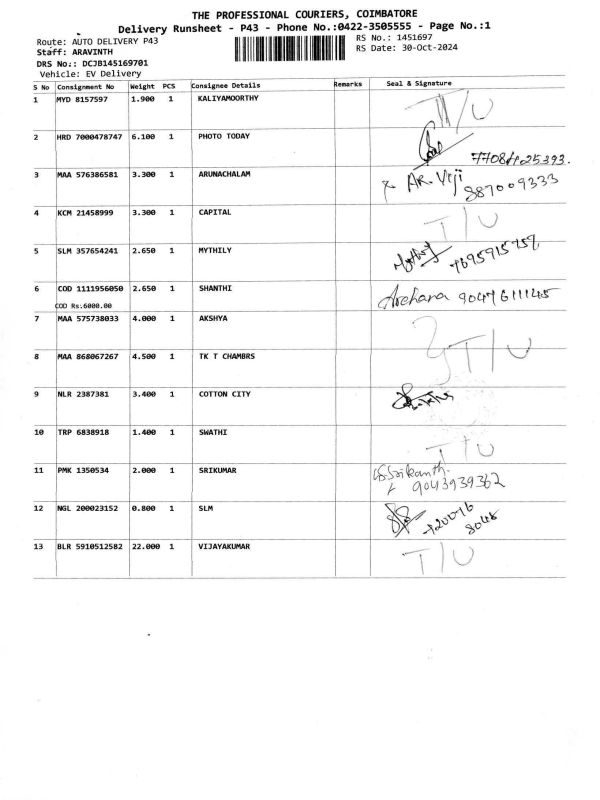 THE PROFESSIONAL COURIERS, COIMBATORE
Delivery Runsheet - P43 - Phone No.:0422-3505555 - Page No.:1
Route: AUTO DELIVERY P43
RS No.: 1451697
Staff: ARAVINTH
RS Date: 30-Oct-2024
DRS No.: DCJB145169701
Vehicle: EV Delivery
S No Consignment No Weight PCS Consignee Details Remarks Seal & Signature
1 MYD 8157597 1.900 1 KALIYAMOORTHY T/U
2 HRD 7000478747 6.100 1 PHOTO TODAY
3 MAA 576386581 3.300 1 ARUNACHALAM AR. Viji 887009333
4 KCM 21458999 3.300 1 CAPITAL T/U
5 SLM 357654241 2.650 1 MYTHILY 7695915757
6 COD 1111956050 2.650 1 SHANTHI Archana 9047611145
COD Rs.6000.00
7 MAA 575738033 4.000 1 AKSHYA T/U
8 MAA 868067267 4.500 1 TK T CHAMBRS
9 NLR 2387381 3.400 1 COTTON CITY
10 TRP 6838918 1.400 1 SWATHI T/U
11 PMK 1350534 2.000 1 SRIKUMAR Srikanth. 9043939362
12 NGL 200023152 0.800 1 SLM
13 BLR 5910512582 22.000 1 VIJAYAKUMAR T/U